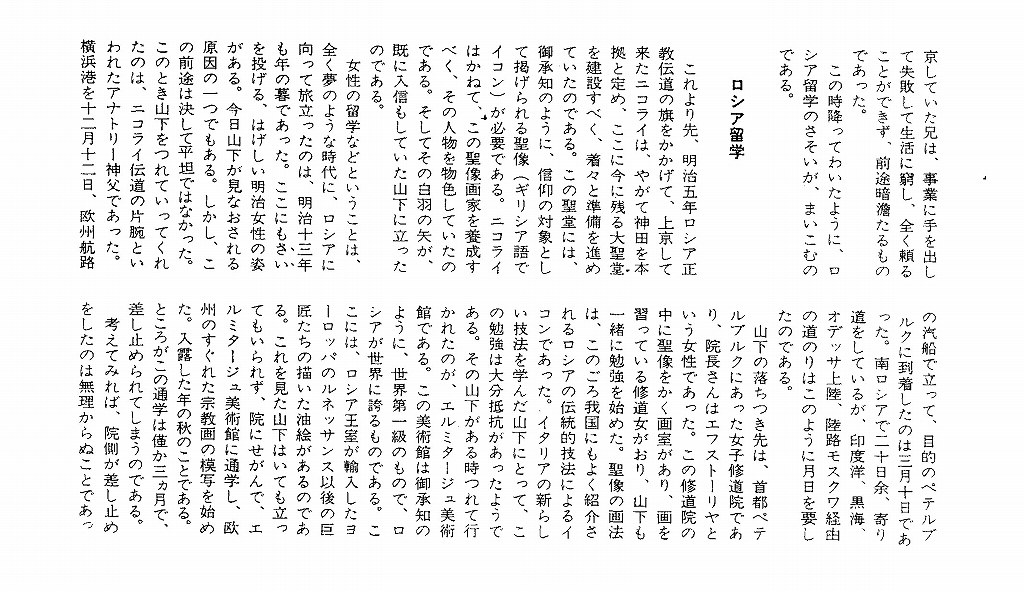 京していた兄は、事業に手を出し
て失敗して生活に窮し、全く頼る
ことができず、前途暗澹たるもの
であった。
この時降ってわいたように、ロ
シア留学のさそいが、まいこむの
である。
ロシア留学
これより先、明治五年ロシア正
教伝道の旗をかかげて、上京して
来たニコライは、やがて神田を本
拠と定め、ここに今に残る大聖堂
を建設すべく、着々と準備を進め
ていたのである。この聖堂には、
御承知のように、信仰の対象とし
て掲げられる聖像（ギリシア語で
イコン）が必要である。ニコライ
はかねて、この聖像画家を養成す
べく、その人物を物色していたの
である。そしてその白羽の矢が、
既に入信もしていた山下に立った
のである。
女性の留学などということは、
全く夢のような時代に、ロシアに
向って旅立ったのは、明治十三年
も年の暮であった。ここにもさい
を投げる、はげしい明治女性の姿
がある。今日山下が見なおされる
原因の一つでもある。しかし、こ
の前途は決して平坦ではなかった。
このとき山下をつれていってくれ
たのは、ニコライ伝道の片腕とい
われたアナトリー神父であった。
横浜港を十二月十二日、欧州航路
の汽船で立って、目的のペテルブ
ルクに到着したのは三月十日であ
った。南ロシアで二十日余、寄り
道をしているが、印度洋、黒海、
オデッサ上陸、陸路モスクワ経由
の道のりはこのように月日を要し
たのである。
山下の落ちつき先は、首都ペテ
ルブルクにあった女子修道院であ
り、院長さんはエフストーリヤと
いう女性であった。この修道院の
中に聖像をかく画室があり、画を
習っている修道女がおり、山下も
一緒に勉強を始めた。聖像の画法
は、このごろ我国にもよく紹介さ
れるロシアの伝統的技法によるイ
コンであった。イタリアの新らし
い技法を学んだ山下にとって、こ
の勉強は大分抵抗があったようで
ある。その山下がある時つれて行
かれたのが、エルミタージュ美術
館である。この美術館は御承知の
ように、世界第一級のもので、ロ
シアが世界に誇るものである。こ
こには、ロシア王室が輸入したヨ
ーロッパのルネッサンス以後の巨
匠たちの描いた油絵があるのであ
る。これを見た山下はいても立っ
てもいられず、院にせがんで、エ
ルミタージュ美術館に通学し、欧
州のすぐれた宗教画の模写を始め
た。入露した年の秋のことである。
ところがこの通学は僅か三ヵ月で、
差し止められてしまうのである。
考えてみれば、院側が差し止め
をしたのは無理からぬことであっ